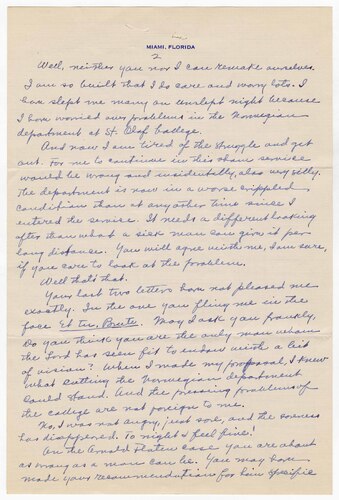 MIAMI, FLORIDA
2
Well, neither you nor I can remake ourselves.
I am so built that I do care and worry lots. I
have slept me many an unslept night because
I have worried over problems in the Norwegian
department at St. Olaf College.
And now I am tired of the struggle and get
out. For me to continue in this sham service
would be wrong and incidentally, also very silly.
The department is now in a worse crippled
condition than at any other time since I
entered the service. It needs a different looking
after than what a sick man can give it per
long distance. You will agree with me, I am sure,
if you care to look at the problem.
Well that's that.
Your last two letters have not pleased me
exactly. In the one you fling me in the
face Et tu, Brute. May I ask you frankly,
Do you think you are the only man whom
the Lord has seen fit to endow with a bit
of vision? When I made my proposal, I knew
what cutting the Norwegian department
could stand. And the pressing problems of
the college are not foreign to me.
No, I was not angry, just sore, and the soreness
has disappeared. To night I feel fine!
On the Arnold Flaten case you are about
as wrong as a man can be. You may have
made your recommendations for him specific